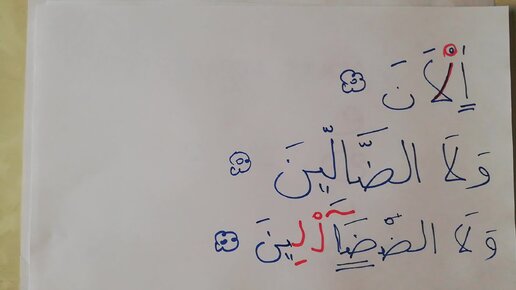 اَلْاَنَ
وَلَا الضَّالِّينَ
وَلَا الضْضَآلْلِينَ